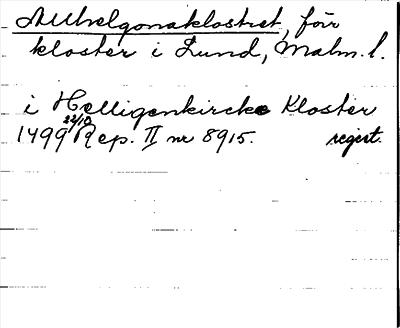 Allhelgonaklostret, förr
kloster i Lund, Malm. l.
i Helligenkircke Kloster
1499 22/10 Rep. II nr 8915. regist.